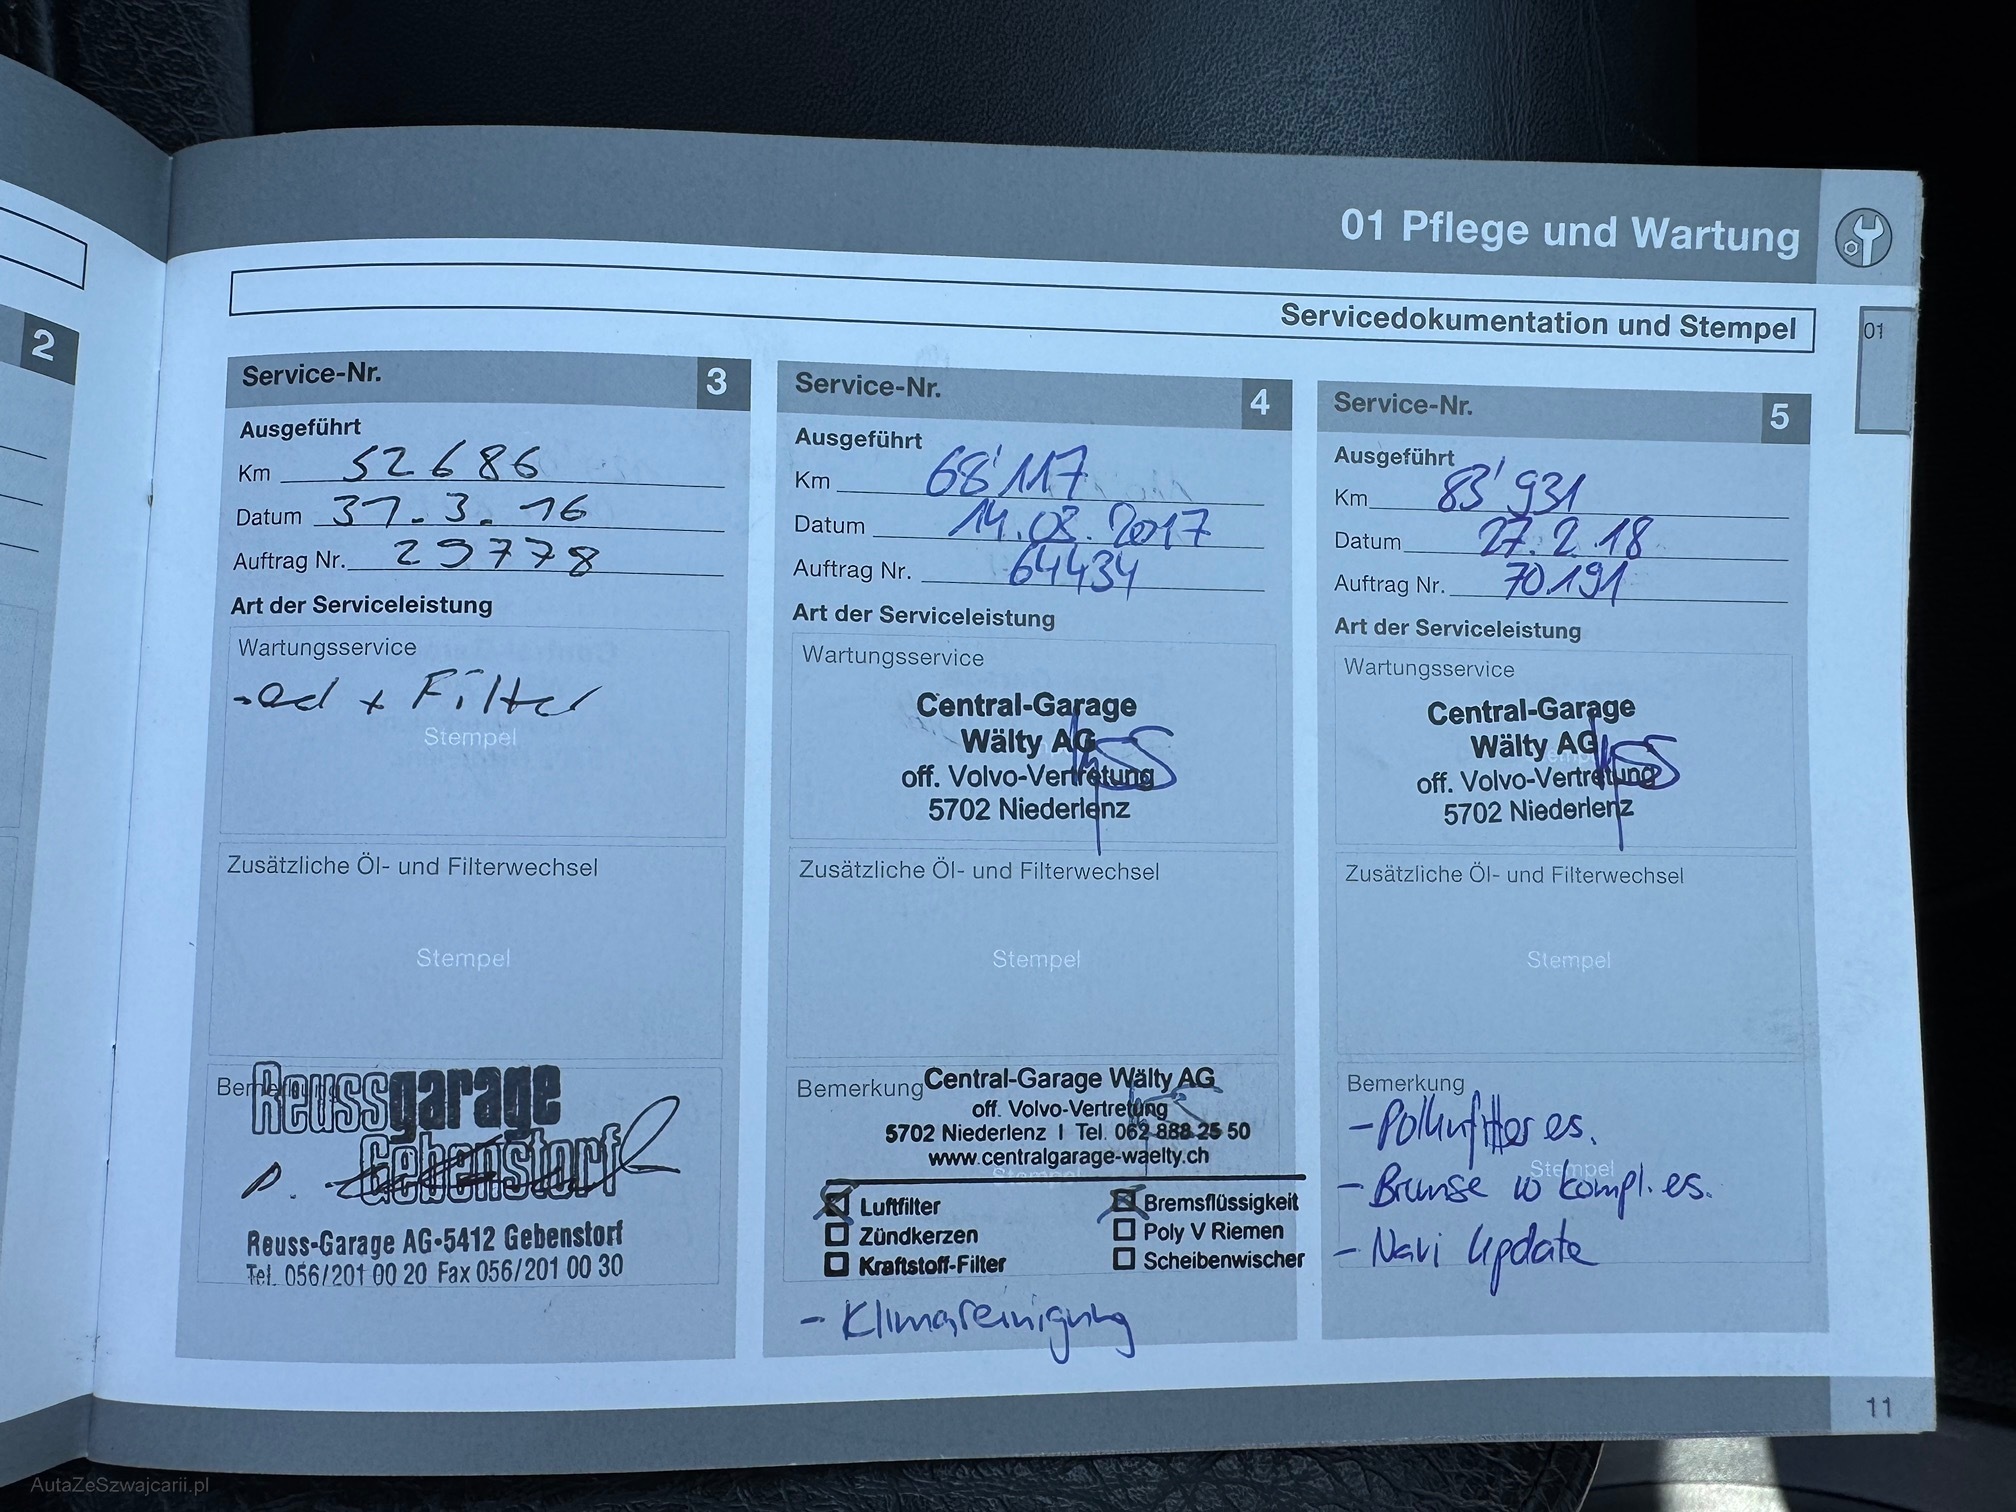 01 Pflege und Wartung
Servicedokumentation und Stempel
01
2
Service-Nr. 3
Ausgeführt
Km 52686
Datum 31.3.16
Auftrag Nr. 29778
Art der Serviceleistung
Wartungsservice
+ Filter
Stempel
Zusätzliche Öl- und Filterwechsel
Stempel
Bemerkung
Reussgarage
Gebenstorf
Reuss-Garage AG•5412 Gebenstorf
Tel. 056/201 00 20 Fax 056/201 00 30
Service-Nr. 4
Ausgeführt
Km 68'117
Datum 14.03.2017
Auftrag Nr. 64434
Art der Serviceleistung
Wartungsservice
Central-Garage
Wälty AG
off. Volvo-Vertretung
5702 Niederlenz
Zusätzliche Öl- und Filterwechsel
Stempel
Bemerkung
Central-Garage Wälty AG
off. Volvo-Vertretung
5702 Niederlenz | Tel. 062 888 25 50
www.centralgarage-waelty.ch
Stempel
Luftfilter Bremsflüssigkeit
Zündkerzen Poly V Riemen
Kraftstoff-Filter Scheibenwischer
- Klimareinigung
Service-Nr. 5
Ausgeführt
Km 83'931
Datum 27.2.18
Auftrag Nr. 70191
Art der Serviceleistung
Wartungsservice
Central-Garage
Wälty AG
off. Volvo-Vertretung
5702 Niederlenz
Zusätzliche Öl- und Filterwechsel
Stempel
Bemerkung
- Pollenfilter es.
Stempel
- Bremse kompl. es.
- Navi Update
11
AutaZeSzwajcarii.pl